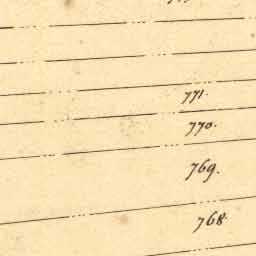 771.
770.
769.
768